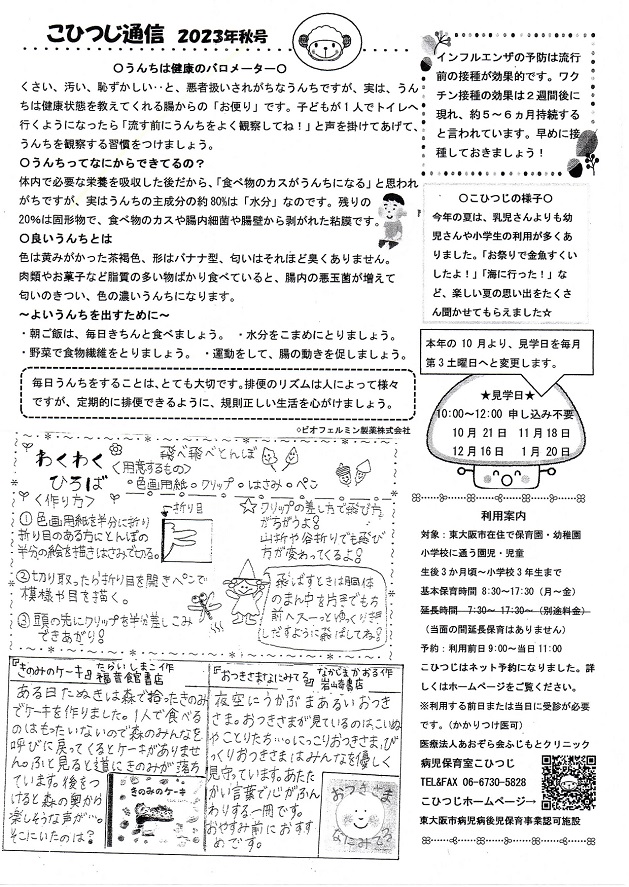 こひつじ通信 2023年秋号
〇うんちは健康のバロメーター〇
くさい、汚い、恥ずかしい‥と、悪者扱いされがちなうんちですが、実は、うん
ちは健康状態を教えてくれる腸からの「お便り」です。子どもが１人でトイレへ
行くようになったら「流す前にうんちをよく観察してね！」と声を掛けてあげて、
うんちを観察する習慣をつけましょう。
〇うんちってなにからできてるの？
体内で必要な栄養を吸収した後だから、「食べ物のカスがうんちになる」と思われ
がちですが、実はうんちの主成分の約80%は「水分」なのです。残りの
20%は固形物で、食べ物のカスや腸内細菌や腸壁から剥がれた粘膜です。
〇良いうんちとは
色は黄みがかった茶褐色、形はバナナ型、匂いはそれほど臭くありません。
肉類やお菓子など脂質の多い物ばかり食べていると、腸内の悪玉菌が増えて
匂いのきつい、色の濃いうんちになります。
～よいうんちを出すために～
・朝ご飯は、毎日きちんと食べましょう。 ・水分をこまめにとりましょう。
・野菜で食物繊維をとりましょう。 ・運動をして、腸の動きを促しましょう。
毎日うんちをすることは、とても大切です。排便のリズムは人によって様々
ですが、定期的に排便できるように、規則正しい生活を心がけましょう。
◇ビオフェルミン製薬株式会社
インフルエンザの予防は流行
前の接種が効果的です。ワク
チン接種の効果は２週間後に
現れ、約５～６ヵ月持続する
と言われています。早めに接
種しておきましょう！
〇こひつじの様子〇
今年の夏は、乳児さんよりも幼
児さんや小学生の利用が多くあ
りました。「お祭りで金魚すくい
したよ！」「海に行った！」な
ど、楽しい夏の思い出をたくさ
ん聞かせてもらえました☆
本年の 10 月より、見学日を毎月
第３土曜日へと変更します。
★見学日★
10:00～12:00 申し込み不要
10月 21日 11月 18日
12月16日 1月 20日
わくわく
ひろば
飛べ飛べとんぼ
<用意するもの>
・色画用紙・クリップ・はさみ・ペン
<作り方>
①色画用紙を半分に折り
折り目のある方にとんぼの
半分の絵を描きはさみで切る。
←折り目
②切り取ったら折り目を開きペンで
模様や目を描く。
③頭の先にクリップを半分差しこみ
できあがり！
☆クリップの差し方で飛び方
がちがうよ！
山折や谷折りでも飛び
方が変わってくるよ！
飛ばすときは胴体
のまん中を片手でもち
前へスーっとゆっくり押
しだすように飛ばしてね！
『きのみのケーキ』たるいしまこ作
福音館書店
ある日たぬきは森で拾ったきのみ
でケーキを作りました。1人で食べる
のはもったいないので森のみんなを
呼びに戻ってくるとケーキがありませ
ん。ふと見ると道にきのみが落ち
ています。後をつ
けると森の奥から
楽しそうな声が…。
そこにいたのは？
きのみのケーキ
『おつきさまなにみてる』なかじまかおる作
岩崎書店
夜空にうかぶまあるいおつき
さま。おつきさまが見ているのはこいぬ
やことりたち…。にっこりおつきさま、びっ
くりおつきさまはみんなを優しく
見守っています。あたた
かい言葉で心がふん
わりする一冊です。
おやすみ前におすす
めです。
おつきさま
なにみてる
利用案内
対象：東大阪市在住で保育園・幼稚園
小学校に通う園児・児童
生後３か月頃～小学校３年生まで
基本保育時間 8:30～17:30（月～金）
延長時間 7:30～ 17:30～（別途料金）
（当面の間延長保育はありません）
予約：利用前日 9:00～当日 11:00
こひつじはネット予約になりました。詳
しくはホームページをご覧ください。
※利用する前日または当日に受診が必要
です。（かかりつけ医可）
医療法人あおぞら会ふじもとクリニック
病児保育室こひつじ
TEL&FAX 06-6730-5828
こひつじホームページ→
東大阪市病児病後児保育事業認可施設